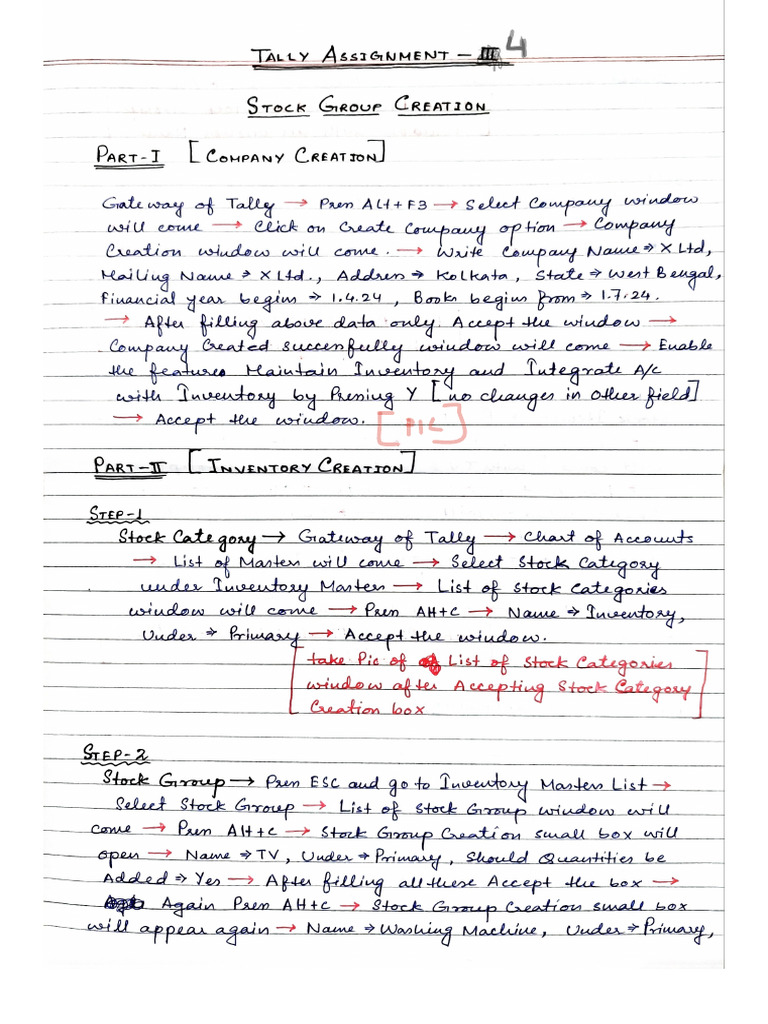 TALLY ASSIGNMENT - 4
STOCK GROUP CREATION
PART-I [COMPANY CREATION]
Gateway of Tally → Press Alt+F3 → Select Company window
will come → Click on Create Company option → Company
Creation window will come. → Write Company Name ⇒ X Ltd,
Mailing Name ⇒ X Ltd., Address ⇒ Kolkata, State ⇒ West Bengal,
Financial year begins ⇒ 1.4.24, Books begins from ⇒ 1.7.24.
→ After filling above data only. Accept the window →
Company Created successfully window will come → Enable
the features Maintain Inventory and Integrate A/c
with Inventory by Pressing Y [no changes in other field]
→ Accept the window. [PIC]
PART-II [INVENTORY CREATION]
STEP-1
Stock Category → Gateway of Tally → Chart of Accounts
→ List of Masters will come → Select Stock Category
under Inventory Masters → List of Stock Categories
window will come → Press Alt+C → Name ⇒ Inventory,
Under ⇒ Primary → Accept the window.
[take Pic of List of Stock Categories
window after Accepting Stock Category
Creation box]
STEP-2
Stock Group → Press ESC and go to Inventory Masters List →
Select Stock Group → List of Stock Group window will
come → Press Alt+C → Stock Group Creation small box will
open → Name ⇒ TV, Under ⇒ Primary, Should Quantities be
Added ⇒ Yes → After filling all these Accept the box →
Again Press Alt+C → Stock Group Creation small box
will appear again → Name ⇒ Washing Machine, Under ⇒ Primary,